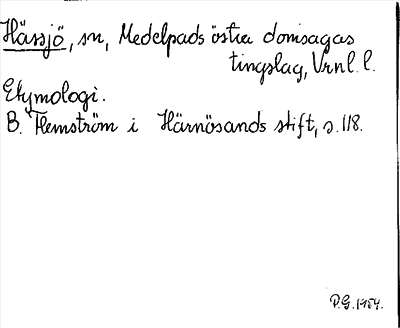 Hässjö, sn, Medelpads östra domsagas
tingslag, Vrnl. l.
Etymologi.
B. Flemström i Härnösands stift, s. 118.
P.G. 1954.